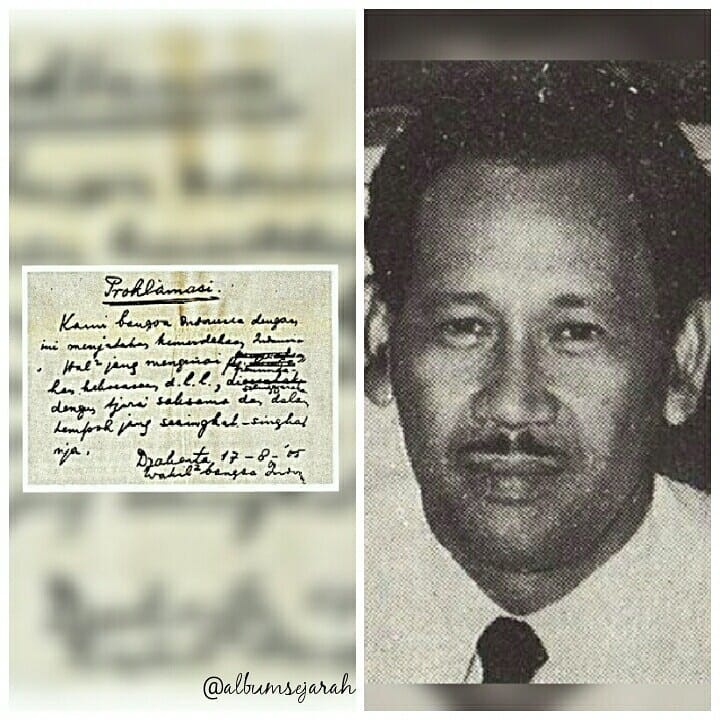 Proklamasi.
Kami bangsa Indonesia dengan
ini menjatakan kemerdekaan Indonesia.
Hal² jang mengenai
kekoeasaan d.l.l.,
dengan tjara saksama dan dalam
tempoh jang sesingkat-singkat
nja.
Djakarta 17-8-'05
Wakil² bangsa Indon
@albumsejarah